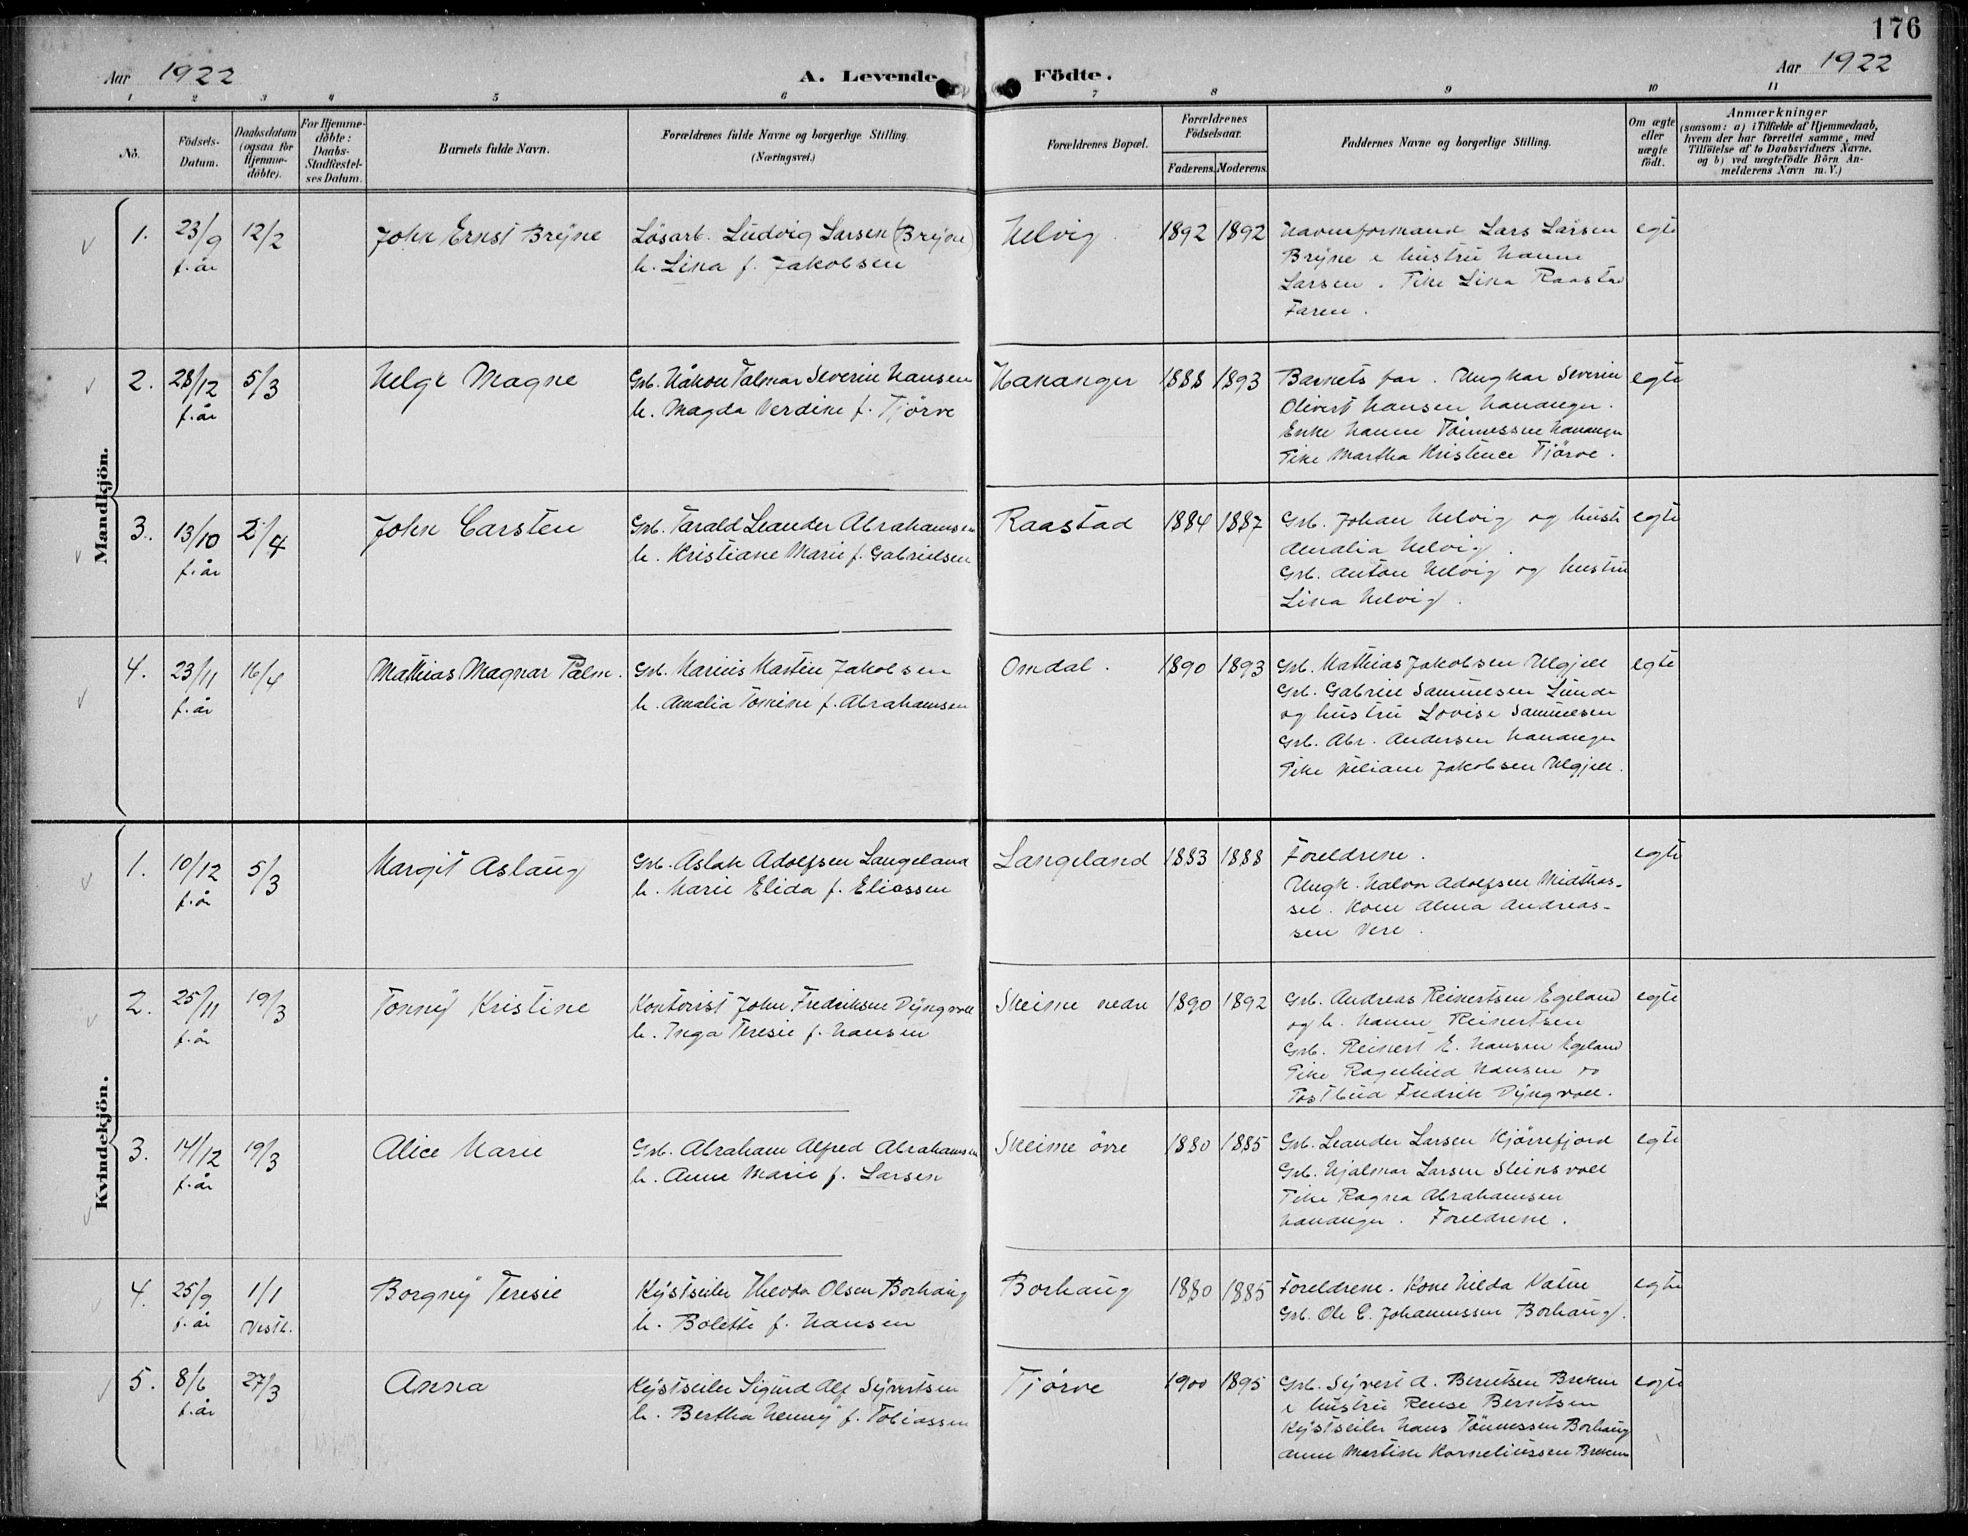 176
Aar 1922
A. Levende
Födte.
Aar 1922
1 2 3 4 5 6 7 8 9 10 11
No.
Födsels-
Datum.
Daabsdatum
(ogsaa for
Hjemme-
döbte).
For Hjemme-
döbte:
Daabs-
Stadfæstel-
ses Datum.
Barnets fulde Navn.
Forældrenes fulde Navne og borgerlige Stilling.
(Næringsvei.)
Forældrenes Bopæl.
Forældrenes
Födselsaar.
Faderens. Moderens.
Faddernes Navne og borgerlige Stilling.
Om ægte
eller
uægte
födt.
Anmærkninger
(saasom: a) i Tilfælde af Hjemmedaab,
hvem der har forrettet samme, med
Tilföielse af to Daabsvidners Navne,
og b) ved uægtefödte Börn An-
melderens Navn m. V.)
Mandkjön.
1. 23/9 f. år 12/2 John Ernst Brÿne
Løsarb. Ludvig Larsen (Brÿne)
h. Lina f. Jakobsen
Helvig. 1892 1892
Havneformand Lars Larsen
Brÿne & hustru Hanne
Larsen. Pike Lina Raastad
Faren.
egte
2. 28/12 f. år 5/3 Helge Magne
Grb. Håkon Talmar Severin Hansen
h. Magda Verdine f. Tjörve
Hananger 1888 1893
Barnets far. Ungkar Severin
Olivert Hansen Hananger.
Enke Hanne Tönnessen Hananger
Pike Martha Kristence Tjörve.
egte
3. 13/10 f. år 2/4 John Carsten
Grb. Tarald Leander Abrahamsen
h. Kristiane Marie f. Gabrielsen
Raastad 1884 1887
Grb. Johan Helvig og hustr
Amalia Helvig.
Grb. Anton Helvig og hustru
Lina Helvig.
egte
4. 23/11 f. år 16/4 Mathias Magnar Palm.
Grb. Marius Martin Jakobsen
h. Amalia Tomine f. Abrahamsen
Omdal. 1890 1893
Grb. Mathias Jakobsen Ulgjell
Grb. Gabriel Samuelsen Lunde
og hustru Lovise Samuelsen
Grb. Abr. Andersen Hananger
Pike Juliane Jakobsen Ulgjell.
egte
Kvindekjön.
1. 10/12 f. år 5/3 Margit Aslaug
Grb. Aslak Adolfsen Langeland
h. Marie Elida f. Eliassen
Langeland 1883 1888
Foreldrene.
Ungk. Halvor Adolfsen Midthas-
sel. Kone Alma Andreas-
sen Vere.
egte
2. 25/11 f. år 19/3 Tonnÿ Kristine
Kontorist John Fredriksen Dÿngvoll
h. Inga Teresie f. Hansen
Skeime nedre 1890 1892
Grb. Andreas Reinertsen Egeland
og h. Hanne Reinertsen
Grb. Reinert E. Hansen Egeland
Pike Ragnhild Hansen do
Postbud Fredrik Dÿngvoll.
egte
3. 14/12 f. år 19/3 Alice Marie
Grb. Abraham Alfred Abrahamsen
h. Anne Marie f. Larsen
Skeime övre 1880 1885
Grb. Leander Larsen Kjörrefjord
Grb. Hjalmar Larsen Steinsvoll
Pike Ragna Abrahamsen
Hananger. Foreldrene.
egte
4. 25/9 f. år 1/1 Vestb. Borgnÿ Teresie
Kÿstseiler Theodor Olsen Borhaug
h. Bolette f. Hansen
Borhaug 1880 1885
Foreldrene. Kone Hilda Vatne
Grb. Ole E. Johannessen Borhaug.
egte
5. 8/6 f. år 27/3 Anna
Kÿstseiler Sigurd Alf Sÿvertsen
h. Bertha Hennÿ f. Tobiassen
Tjörve 1900 1895
Grb. Sÿvert A. Berntsen Brekne
& hustru Rense Berntsen
Kÿstseiler Hans Tönnessen Borhaug
Anne Martine Korneliussen Brekne
egte